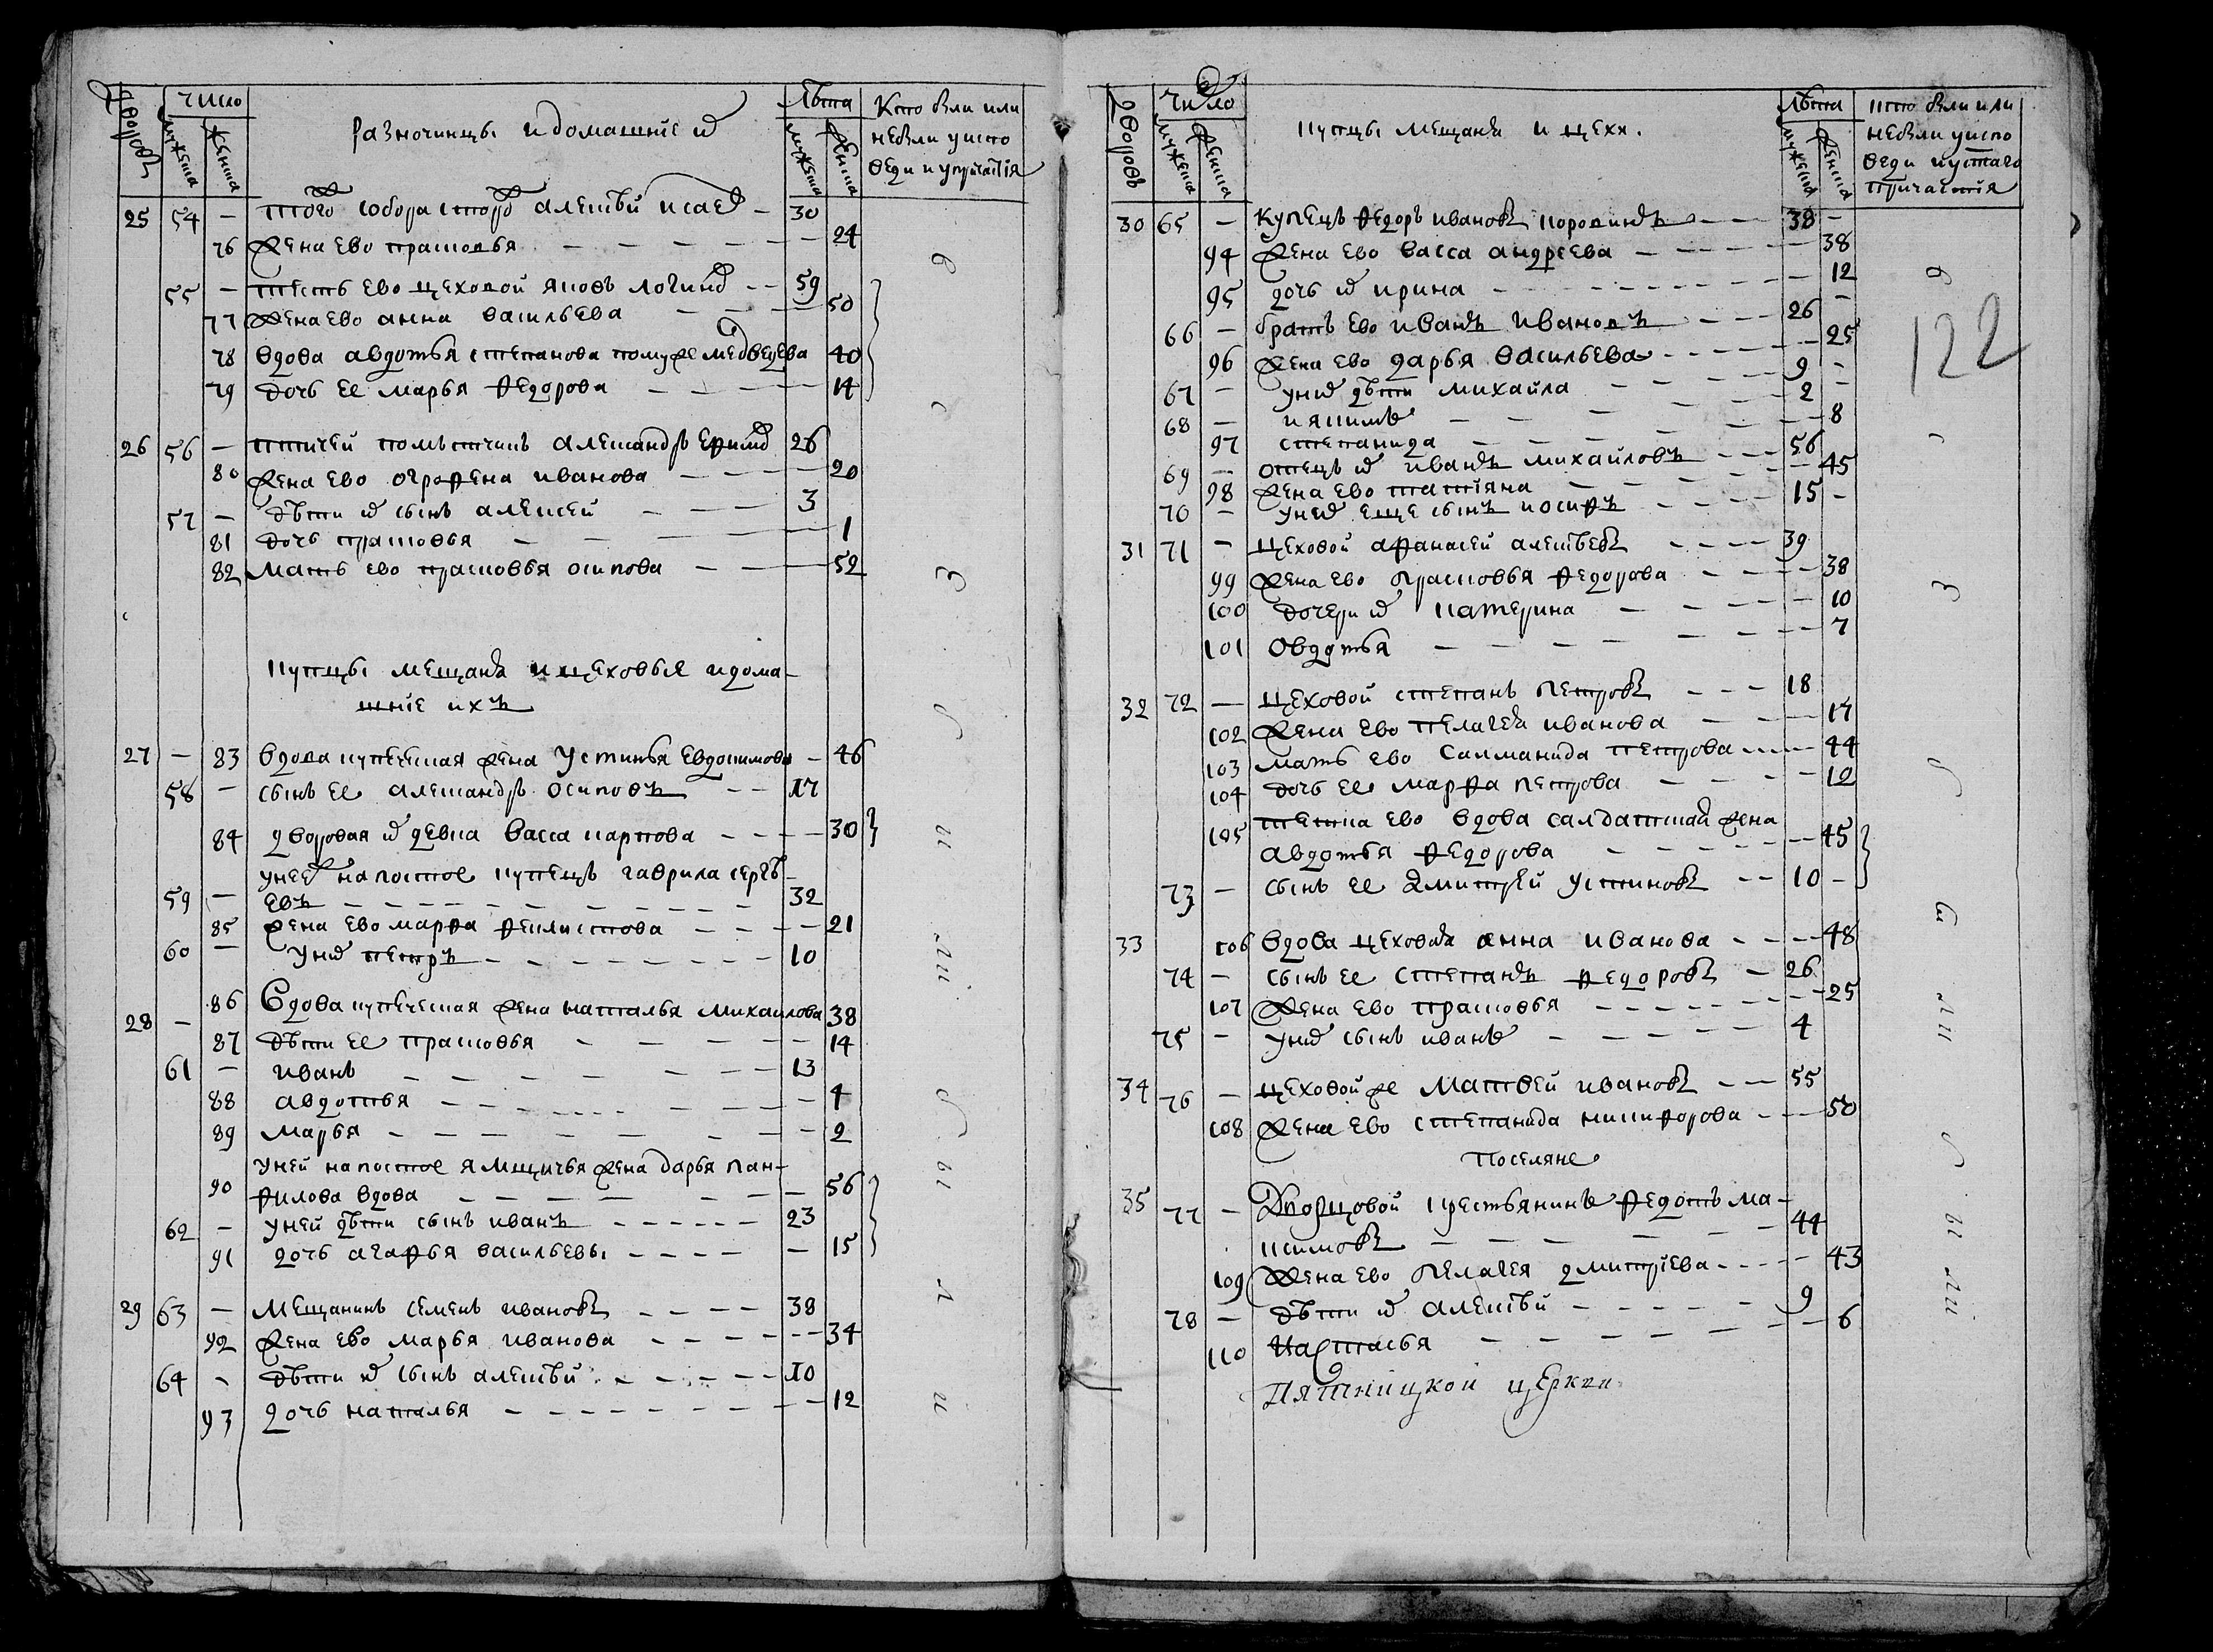 дворовъ число мужеска женска разночинцы и домашніе их лѣта мужеска женска Кто был или
не был у испо
веди и у причастія
25 54 — того собора сторо алеѯѣй исаев — 30
76 жена ево прасковья — 24
55 — тесть ево цеховой яковъ логинов — 59
77 жена ево анна васильева — 50
78 вдова авдотья степанова по муже медведева 40
79 дочь ее марья федорова — 14
26 56 — помѣтчикъ алеѯандръ ефимов 26
80 жена ево огрофена иванова — 20
57 — дѣти их сынъ алеѯей — 3
81 дочь прасковья — 1
82 мать ево прасковья осипова — 52
купцы мещаня и цеховыя и дома-
шніе ихъ
27 — 83 вдова купеческая жена устинья евдокимова — 46
58 — сынъ ее алеѯандръ осиповъ — 17
84 дворовая их девка васса карпова — 30
у нее на постое купецъ гаврила сергѣ-
59 — евъ — 32
85 жена ево марфа феклистова — 21
60 — у них петръ — 10
28 — 86 вдова купеческая жена наталья михайлова 38
87 дѣти ее прасковья — 14
61 — иванъ — 13
88 авдотья — 4
89 марья — 2
у ней на постое ямщичья жена дарья пан-
90 филова вдова — 56
62 — у ней дѣти сынъ иванъ — 23
91 дочь агафья васильевы — 15
29 63 — мещанинъ семенъ ивановъ — 38
92 жена ево марья иванова — 34
64 — дѣти их сынъ алеѯѣй — 10
93 дочь наталья — 12
в с з д ы к ли ы л и
дворовъ число мужеска женска купцы мещаня и цехи. лѣта мужеска женска кто был или
не был у испо
веди и у таго
причастія
30 65 — купецъ федоръ ивановъ породинъ — 38 —
94 жена ево васса андреева — 38
95 дочь их ирина — 12
66 — братъ ево иванъ ивановъ — 26 —
96 жена ево дарья васильева — 25
67 — у них дѣти михайла — 9 —
68 — иякимъ — 2 —
97 степанида — 8
69 — отецъ их иванъ михайловъ — 56
98 жена ево татіяна — 45
70 — у них еще сынъ иосифъ — 15 —
31 71 — цеховой афанасей алеѯѣевъ — 39
99 жена ево прасковья федорова — 38
100 дочери их катерина — 10
101 овдотья — 7
32 72 — цеховой степанъ петровъ — 18
102 жена ево пелагея иванова — 17
103 мать ево салманида петрова — 44
104 дочь ее марфа петрова — 12
105 тетка ево вдова салдатская жена
авдотья федорова — 45
73 — сынъ ее дмитрей устиновъ — 10 —
33 106 вдова цеховая анна иванова — 48
74 — сынъ ее степанъ федоровъ — 26
107 жена ево прасковья — 25
75 — у них сынъ иванъ — 4
34 76 — цеховой же матвей ивановъ — 55
108 жена ево степанида никифорова — 50
поселяне
35 77 — дворцовой крестьянинъ федотъ ма-
ксимовъ — 44
109 жена ево пелагея дмитріева — 43
78 — дѣти их алеѯѣй — 9
110 настасья — 6
Пятницкой церкви
122